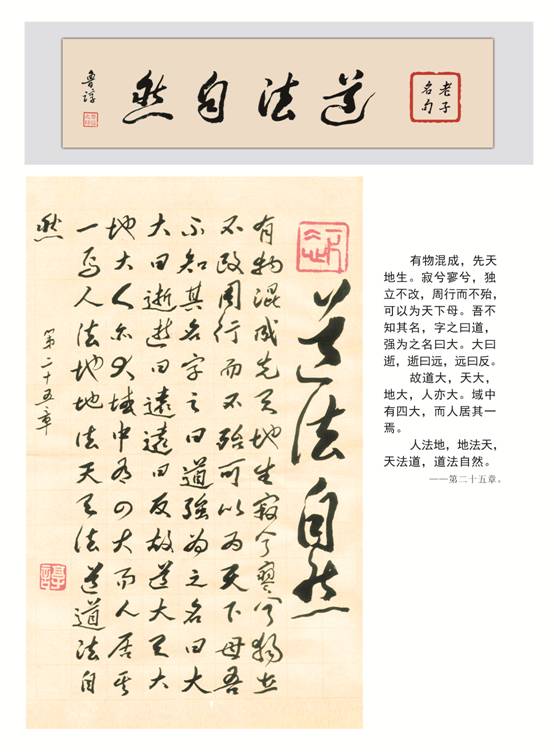 老子
名句
道法自然
魯諄
道法自然
有物混成先天地生寂兮寥兮獨立
不改周行而不殆可以为天下母吾
不知其名字之曰道強为之名曰大
大曰逝逝曰遠遠曰反故道大天大
地大人亦大域中有四大而人居其
一焉人法地地法天天法道道法自
然
第二十五章
有物混成，先天
地生。寂兮寥兮，独
立不改，周行而不殆，
可以为天下母。吾不
知其名，字之曰道，
强为之名曰大。大曰
逝，逝曰远，远曰反。
故道大，天大，
地大，人亦大。域中
有四大，而人居其一
焉。
人法地，地法天，
天法道，道法自然。
——第二十五章。